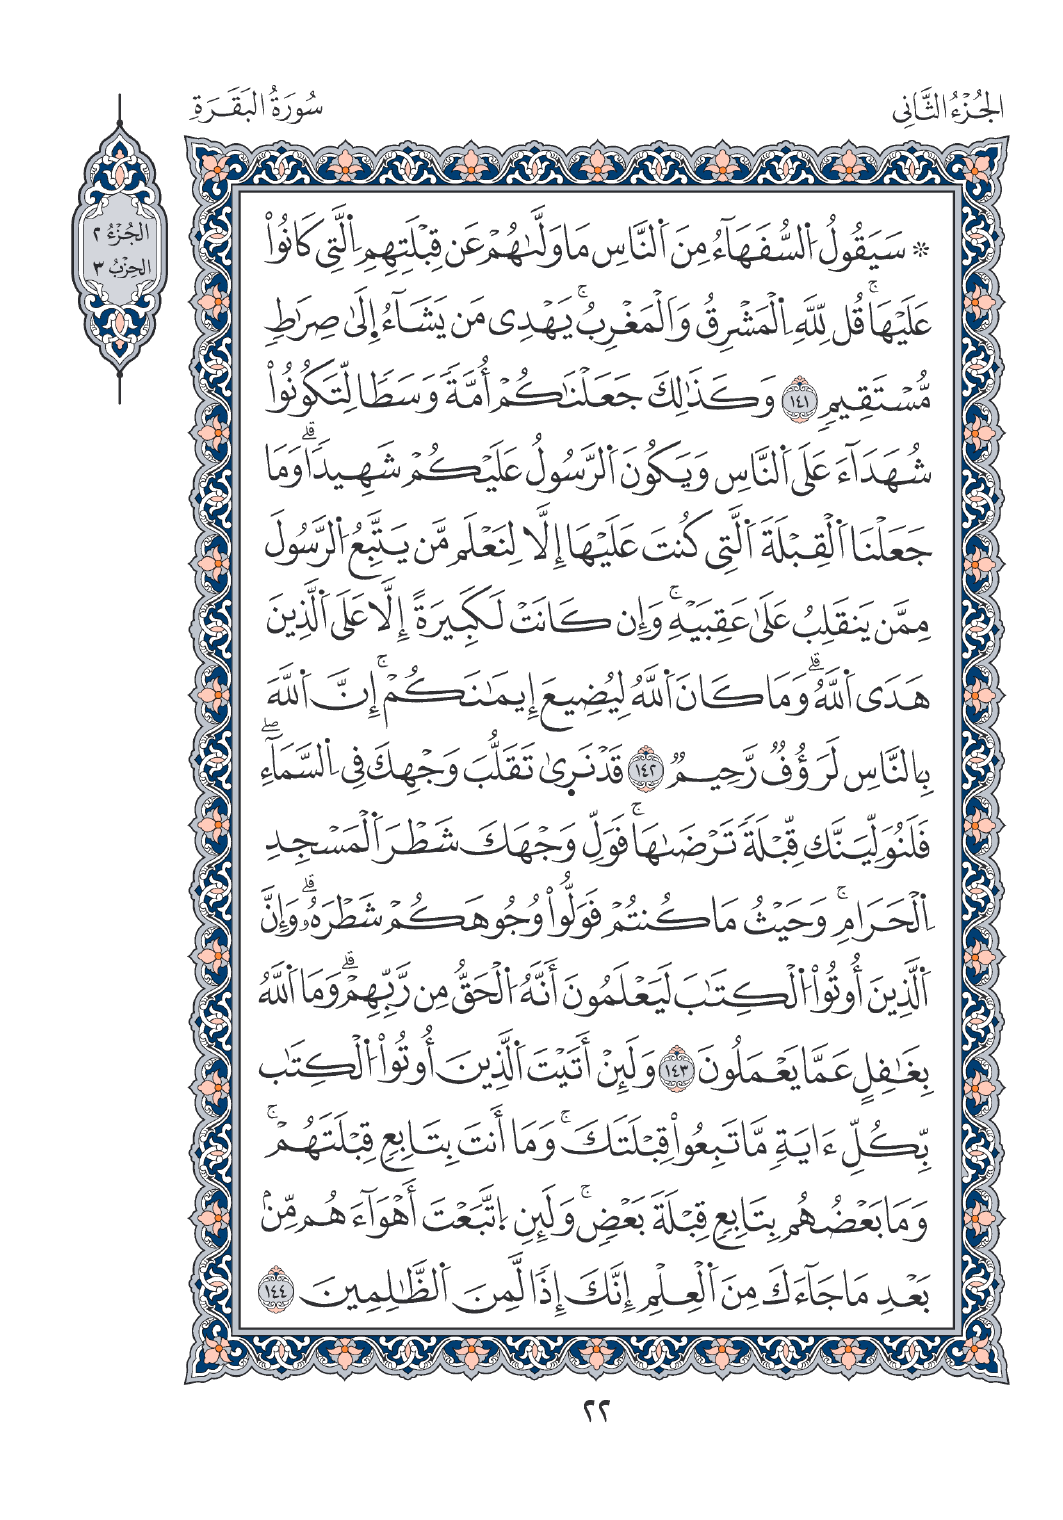 الجُزْءُ الثَّانِي
سُورَةُ البَقَرَةِ
الجُزْءُ ٢
الحِزْبُ ٣
* سَيَقُولُ اُ۬لسُّفَهَآءُ مِنَ اَ۬لنَّاسِ مَا وَلَّىٰهُمْ عَن قِبْلَتِهِمِ اِ۬لَّتِي كَانُواْ
عَلَيْهَاۚ قُل لِّلَّهِ اِ۬لْمَشْرِقُ وَالْمَغْرِبُۚ يَهْدِي مَن يَشَآءُ اِ۪لَىٰ صِرَٰطٖ
مُّسْتَقِيمٖ ١٤١ وَكَذَٰلِكَ جَعَلْنَٰكُمْ أُمَّةٗ وَسَطٗا لِّتَكُونُواْ
شُهَدَآءَ عَلَى اَ۬لنَّاسِ وَيَكُونَ اَ۬لرَّسُولُ عَلَيْكُمْ شَهِيدٗاۗ وَمَا
جَعَلْنَا اَ۬لْقِبْلَةَ اَ۬لَّتِي كُنتَ عَلَيْهَا إِلَّا لِنَعْلَم مَّن يَتَّبِعُ اُ۬لرَّسُولَ
مِمَّن يَنقَلِبُ عَلَىٰ عَقِبَيْهِۚ وَإِن كَانَتْ لَكَبِيرَةً إِلَّا عَلَى اَ۬لَّذِينَ
هَدَى اَ۬للَّهُۗ وَمَا كَانَ اَ۬للَّهُ لِيُضِيعَ إِيمَٰنَكُمْۚ إِنَّ اَ۬للَّهَ
بِالنَّاسِ لَرَؤُفٞ رَّحِيمٞ ١٤٢ قَدْ نَرِىٰ تَقَلُّبَ وَجْهِكَ فِي اِ۬لسَّمَآءِۖ
فَلَنُوَلِّيَنَّك قِّبْلَةٗ تَرْضَىٰهَاۚ فَوَلِّ وَجْهَكَ شَطْرَ اَ۬لْمَسْجِدِ
اِ۬لْحَرَامِۚ وَحَيْثُ مَا كُنتُمْ فَوَلُّواْ وُجُوهَكُمْ شَطْرَهُۥۗ وَإِنَّ
اَ۬لَّذِينَ أُوتُواْ اُ۬لْكِتَٰبَ لَيَعْلَمُونَ أَنَّهُ اُ۬لْحَقُّ مِن رَّبِّهِمْۗ وَمَا اَ۬للَّهُ
بِغَٰفِلٍ عَمَّا يَعْمَلُونَ ١٤٣ وَلَئِنْ أَتَيْتَ اَ۬لَّذِينَ أُوتُواْ اُ۬لْكِتَٰب
بِّكُلِّ ءَايَةٖ مَّا تَبِعُواْ قِبْلَتَكَۚ وَمَا أَنتَ بِتَابِعٖ قِبْلَتَهُمْۚ
وَمَا بَعْضُهُم بِتَابِعٖ قِبْلَةَ بَعْضٖۚ وَلَئِنِ اِ۪تَّبَعْتَ أَهْوَآءَهُم مِّنۢ
بَعْدِ مَا جَآءَكَ مِنَ اَ۬لْعِلْمِ إِنَّكَ إِذٗا لَّمِنَ اَ۬لظَّٰلِمِينَ ١٤٤
٢٢